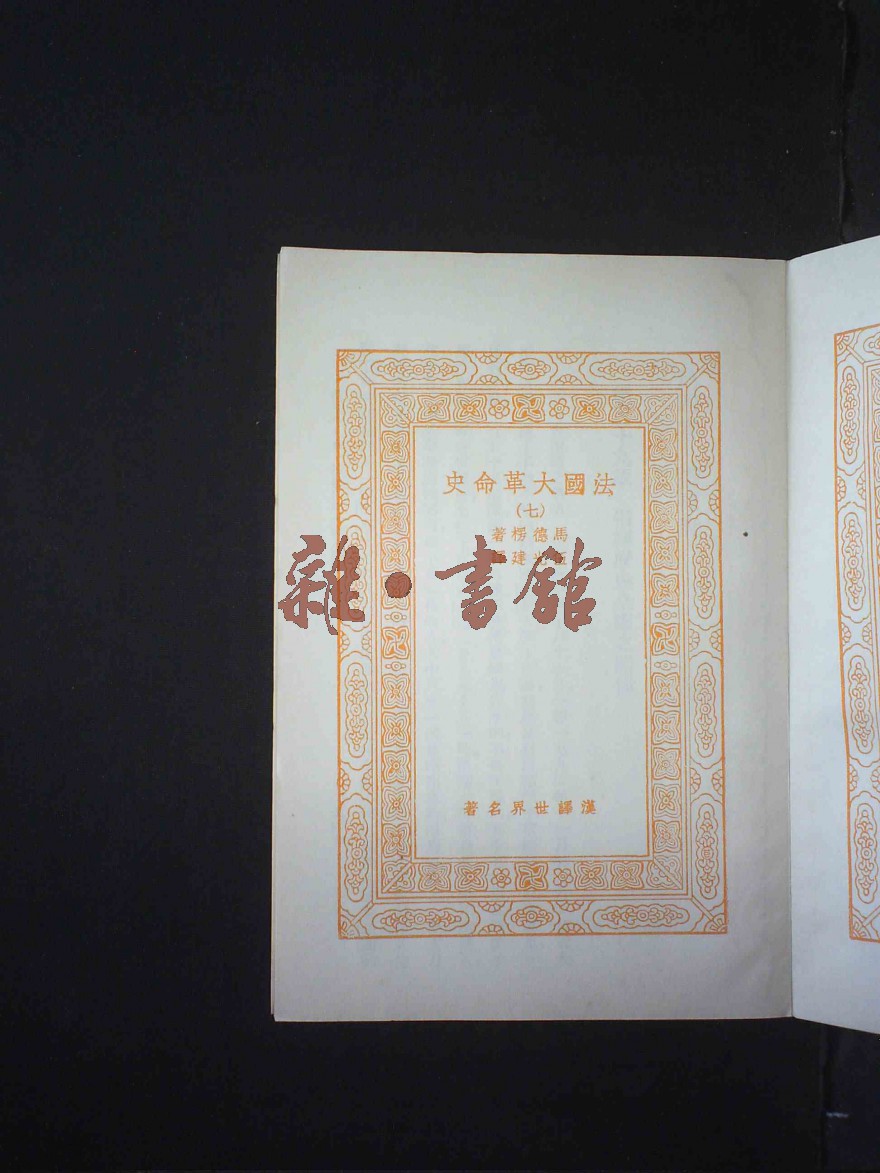 法國大革命史
（七）
馬德楞著
建
雜·書館
漢譯世界名著